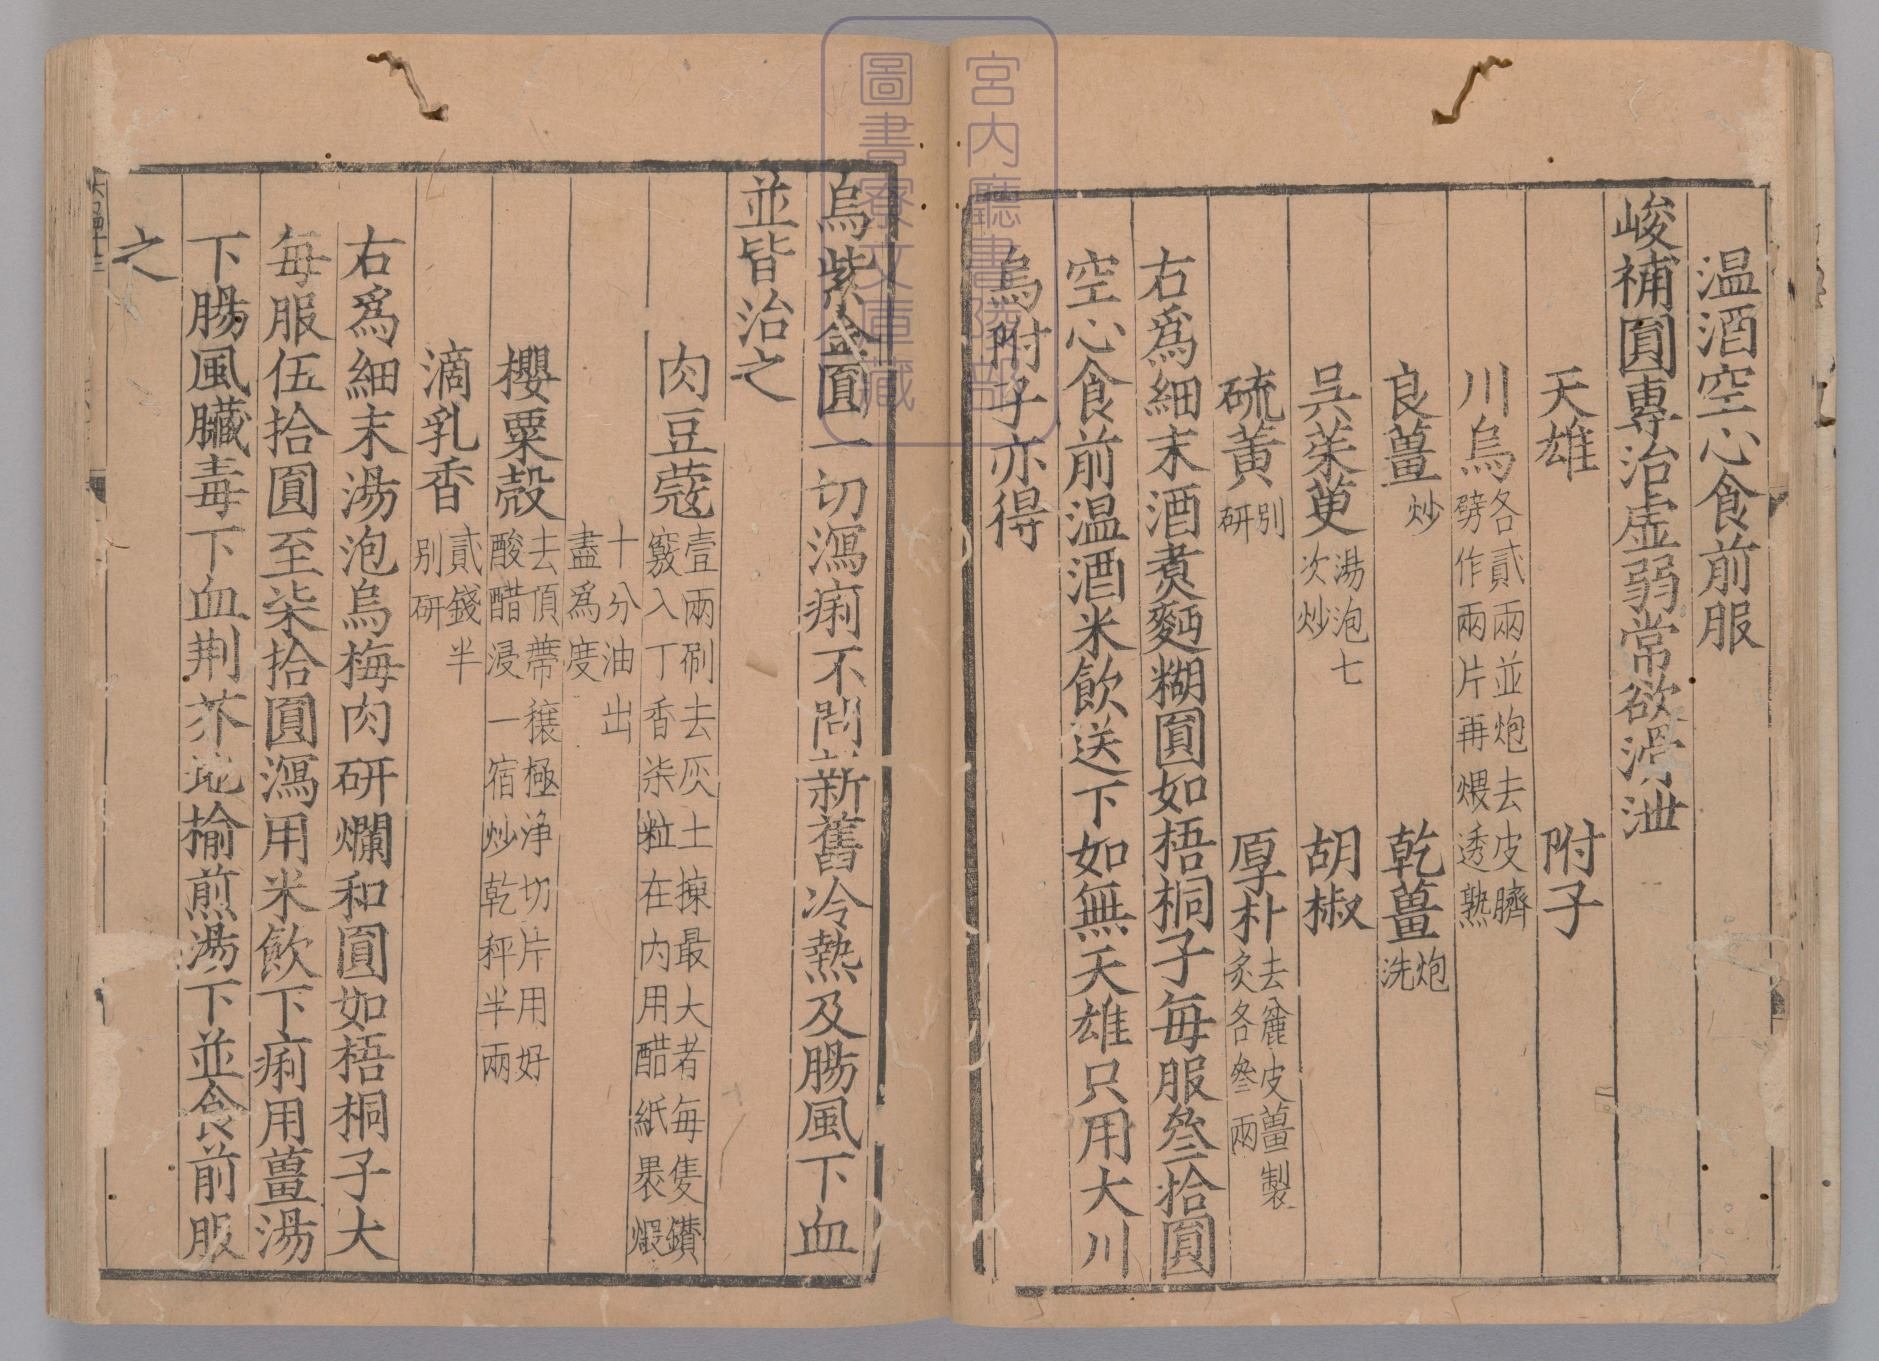 温酒空心食前服
峻補圓專治虚弱常欲滑泄
天雄　附子
川烏各貳兩並炮去皮臍
劈作兩片再煨透熟
良薑炒　乾薑炮
洗
吳茱萸湯泡七
次炒　胡椒
硫黃別
研　厚朴去麄皮薑製
炙各叄兩
右爲細末酒煮麪糊圓如梧桐子每服叄拾圓
空心食前温酒米飲送下如無天雄只用大川
烏附子亦得
烏紫金圓一切瀉痢不問新舊冷熱及腸風下血
並皆治之
肉豆蔻壹兩刷去灰土揀最大者每隻鑚
竅入丁香柒粒在内用醋紙褁煆
十分油出
盡爲度
櫻粟殼去頂蔕穰極净切片用好
酸醋浸一宿炒乾秤半兩
滴乳香貳錢半
別研
右爲細末湯泡烏梅肉研爛和圓如梧桐子大
每服伍拾圓至柒拾圓瀉用米飲下痢用薑湯
下腸風臟毒下血荆芥地榆煎湯下並食前服
之
宮内廳書陵部
圖書寮文庫藏